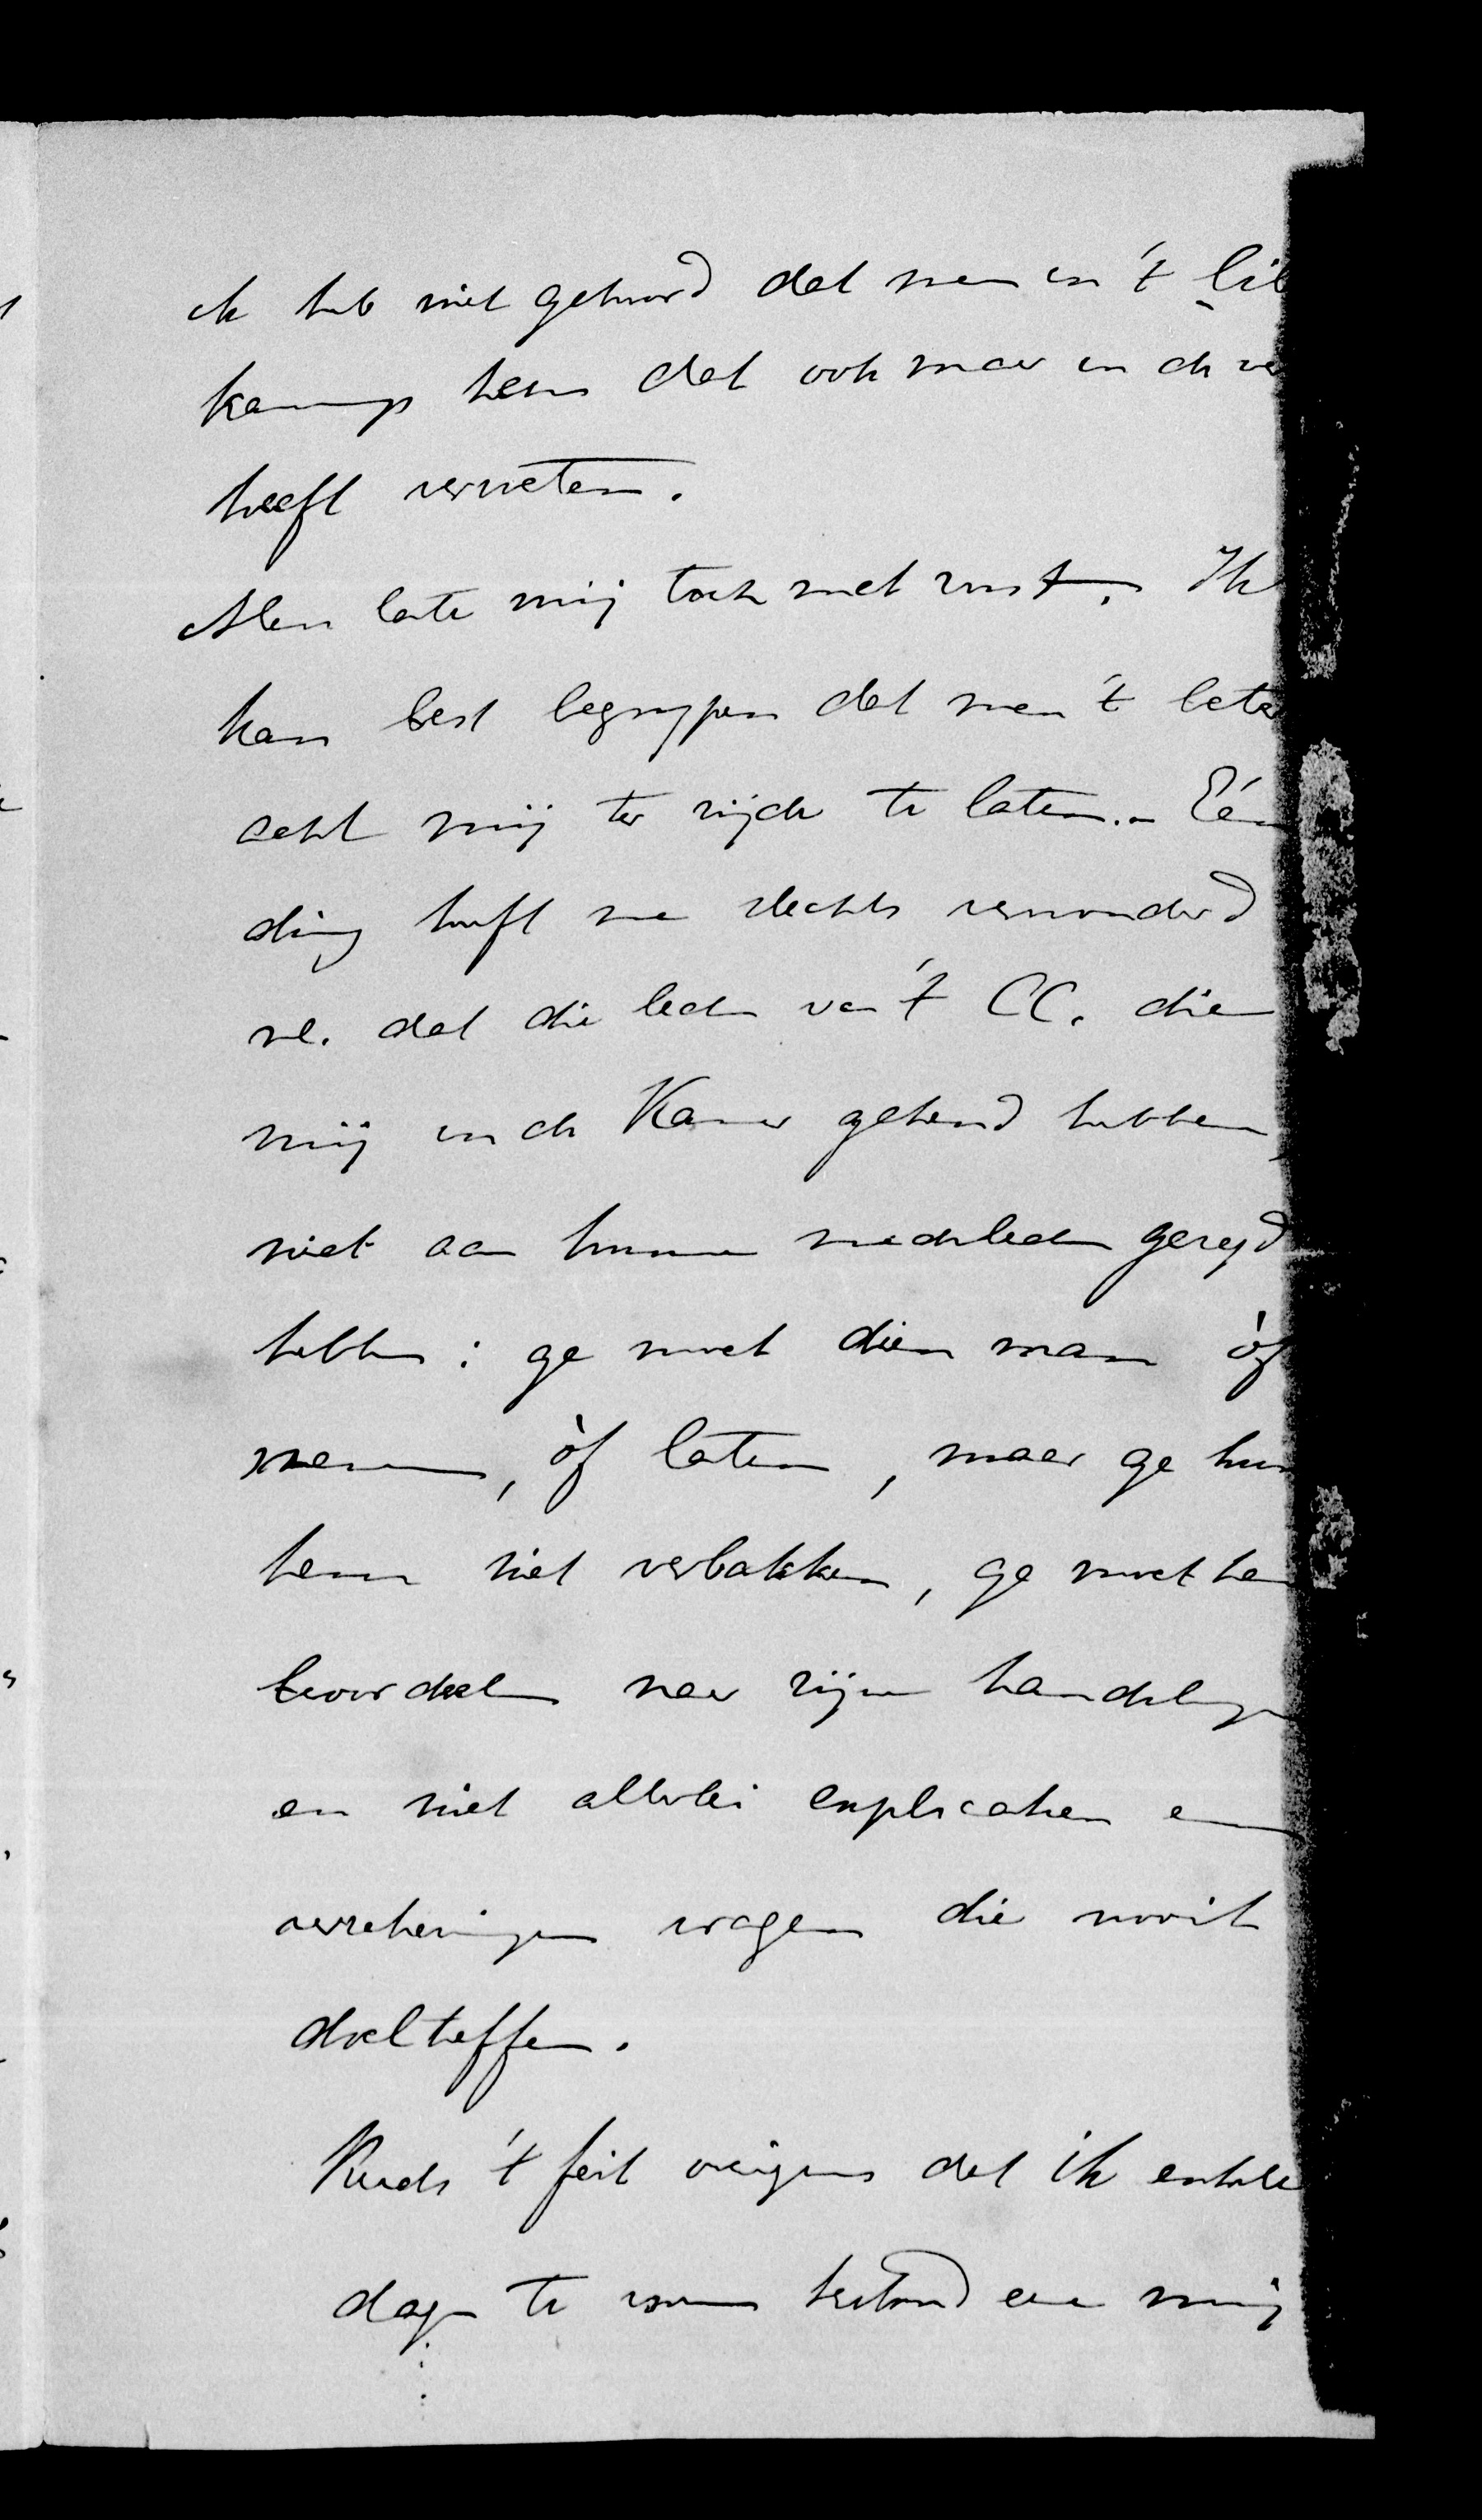 ik heb niet gehoord dat men in 't lib
kamp hem dat ook maar in de ver
heeft verweten.
Men late mij toch met rust. Ik
kan best begrypen dat men 't beter
acht mij ter zijde te laten. – Eén
ding heeft me slechts verwonderd
nl. dat die leden van 't CC. die
mij in de Kamer gekend hebben,
niet aan hunne medeleden gezegd
hebben: ge moet dien man òf
nemen, òf laten, maar ge kun
hem niet verbakken, ge moet hem
beoordeelen naar zijne handelingen
en niet allerlei explicatien en
verzekeringen vragen die nooit
doel treffen.
Reeds 't feit overigens dat ik enkele
dagen te voren bestond een mij